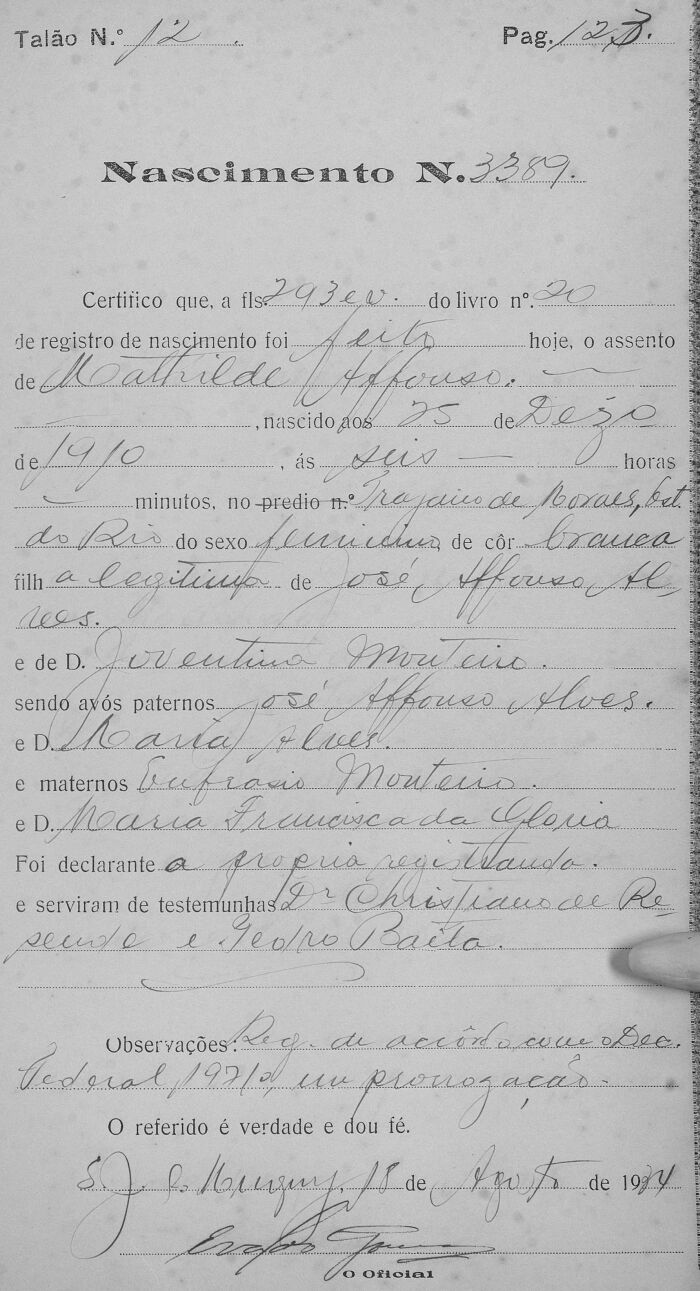 Talão N.º 12. Pag. 123.
Nascimento N. 3389.
Certifico que, a fls. 293 e v. do livro nº. 20
de registro de nascimento foi feito hoje, o assento
de Mathilde Affonso. —
— , nascido aos 25 de Dezo
de 1910 , ás seis — horas
— minutos, no predio n.º Trajano de Moraes, Est.
do Rio do sexo feminino, de côr branca
filh a legitima de José Affonso Al-
ves.
e de D. Joventina Monteiro.
sendo avós paternos José Affonso Alves.
e D. Maria Alves.
e maternos Eufrasio Monteiro.
e D. Maria Francisca da Gloria
Foi declarante a propria registranda.
e serviram de testemunhas Dr Christiano de Re-
sende e Pedro Baeta.
Observações: Reg. de acôrdo com o Dec.
Federal, 19710, em prorrogação.
O referido é verdade e dou fé.
S. J. 18 de Agosto de 1934
O Oficial